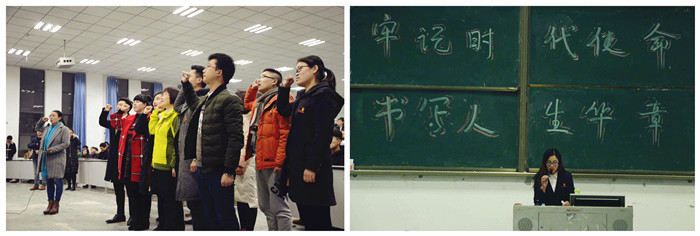 牢记时代使命
书写人生华章